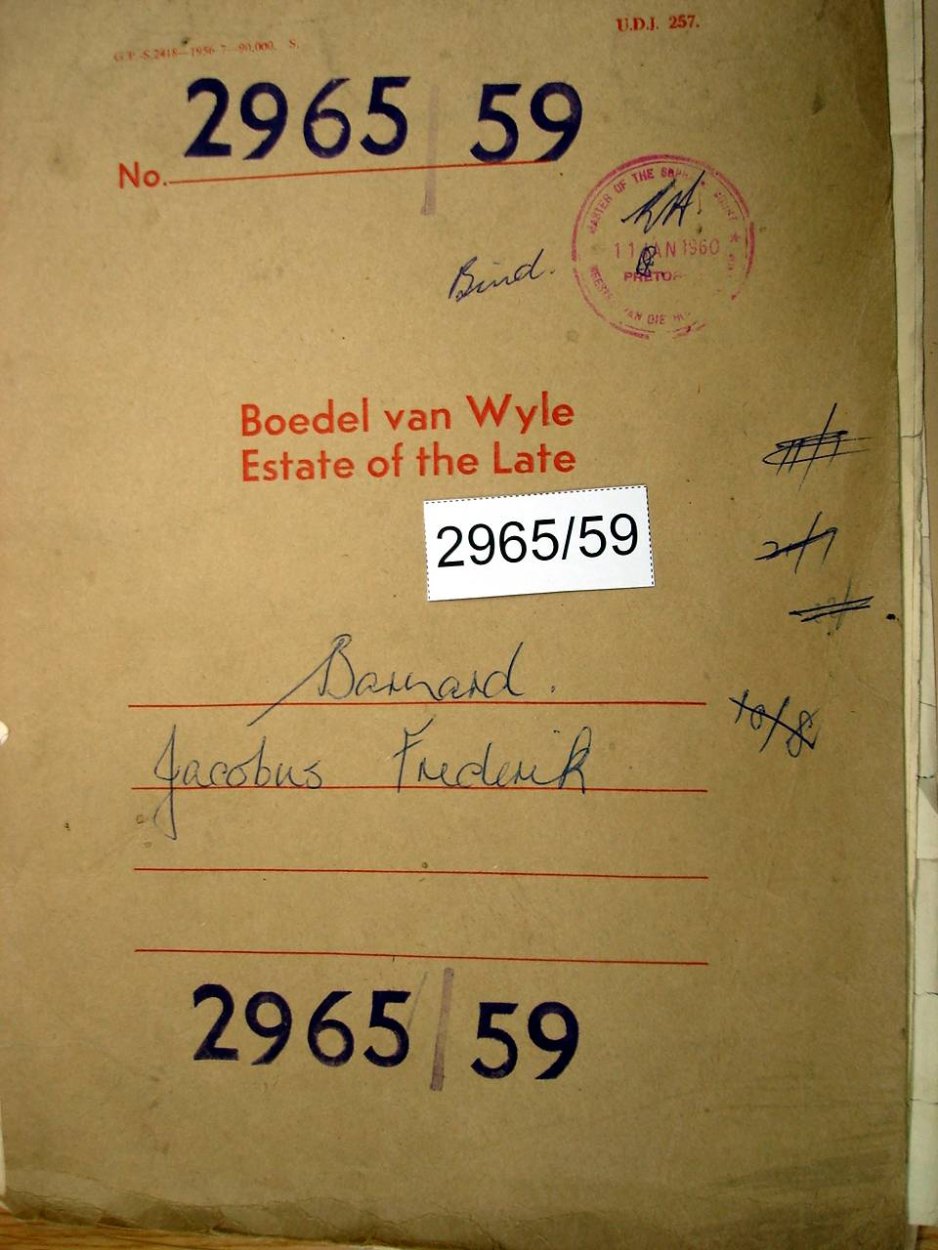 U.D.J. 257.
G.P.-S.2418—1956-7—90,000. S.
2965/59
No.
MASTER OF THE SUPREME COURT
11 JAN 1960
PRETORIA
MEESTER VAN DIE
Bind.
Boedel van Wyle
Estate of the Late
2965/59
2/7
Barnard.
10/8
Jacobus Frederik
2965/59